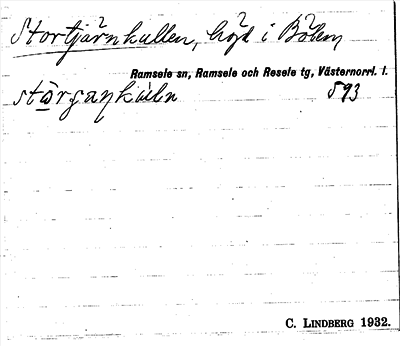 Stortjärnkullen, höjd i Bölen
Ramsele sn, Ramsele och Resele tg, Västernorrl. l.
593
C. LINDBERG 1932.